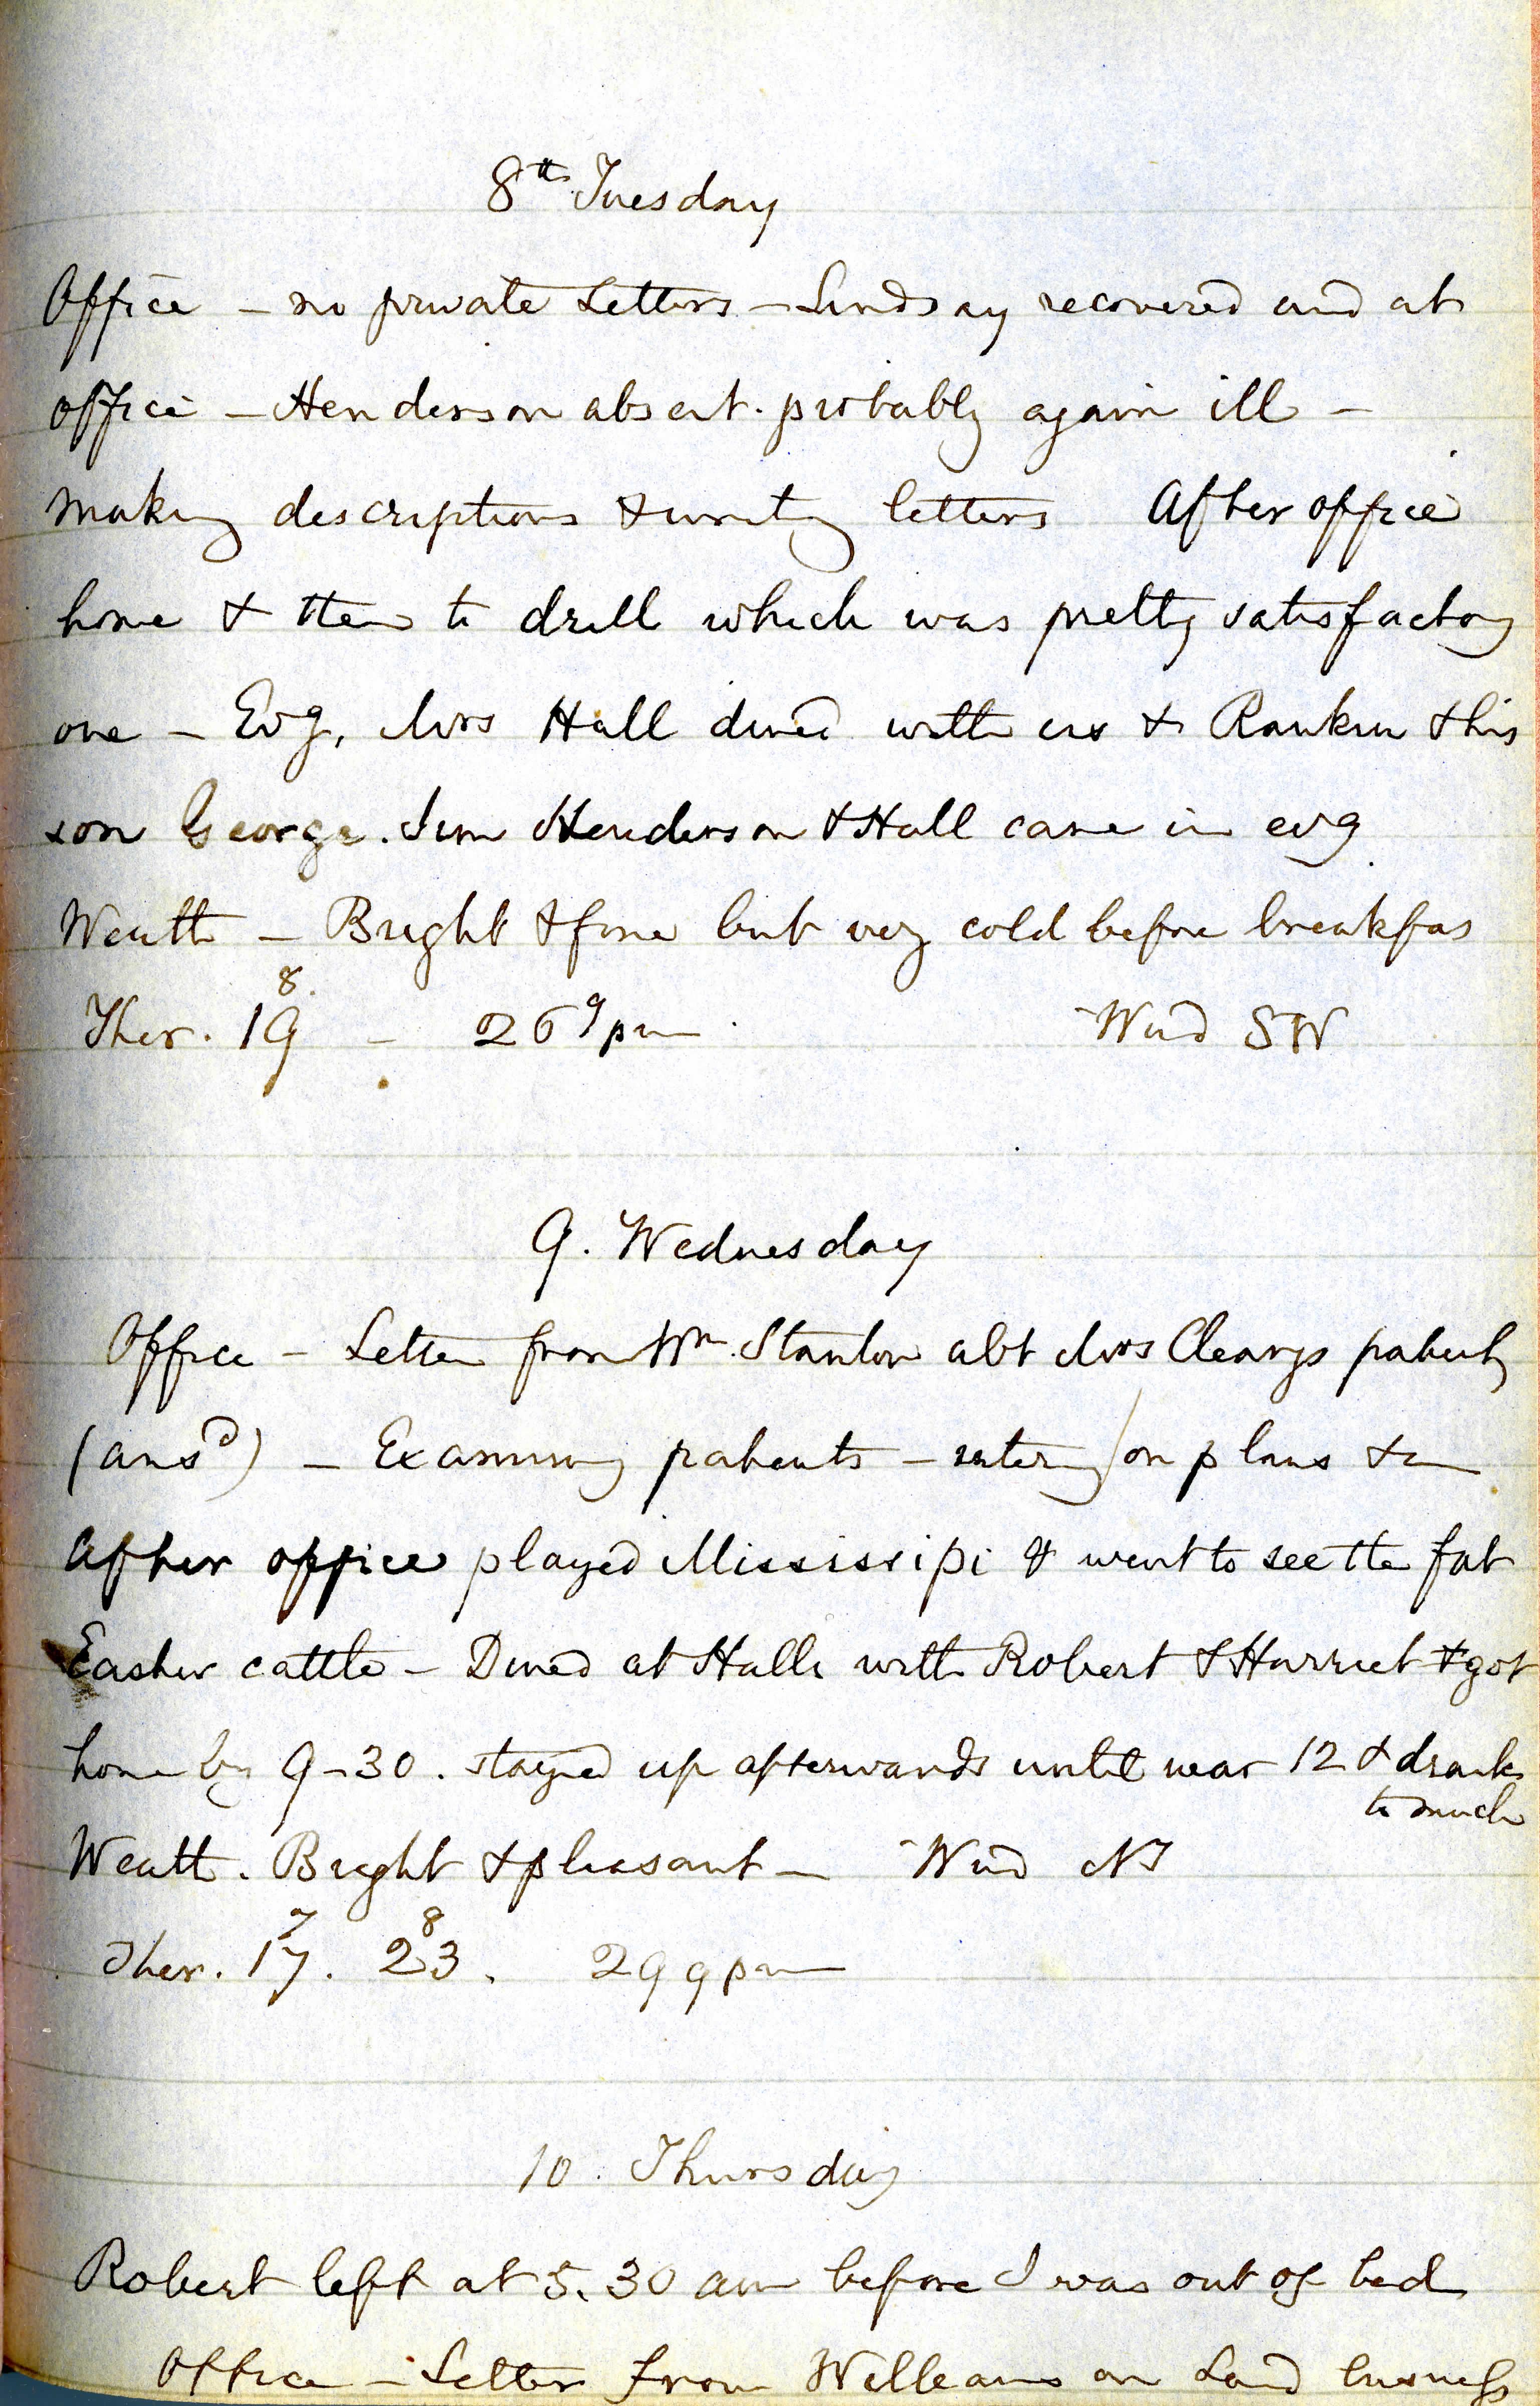 8th Tuesday
Office - no private Letters - Lindsay recovered and at
office - Henderson absent. probably again ill -
Making descriptions & writing letters After office
home & then to drill which was pretty satisfactory
one - Evg, Mrs Hall dined with us & Rankin & his
son George. Jim Henderson & Hall came in evg
Weath - Bright & fine but very cold before breakfas
8
Ther. 19 - 26 9 pm Wind SW
9. Wednesday
Office - Letter from Wm. Stanton abt Mrs Clearys patent
(ansd) - Examining patents - entering on plans &c
After office played Mississipi & went to see the fat
Easter cattle - Dined at Halls with Robert & Harriet & got
home by 9-30. stayed up afterwards until near 12 & drank
to much
Weath. Bright & pleasant - Wind
7 8
Ther. 17. 23. 29 9 pm
10. Thursday
Robert left at 5.30 am before I was out of bed
Office - Letter from Williams on Land business